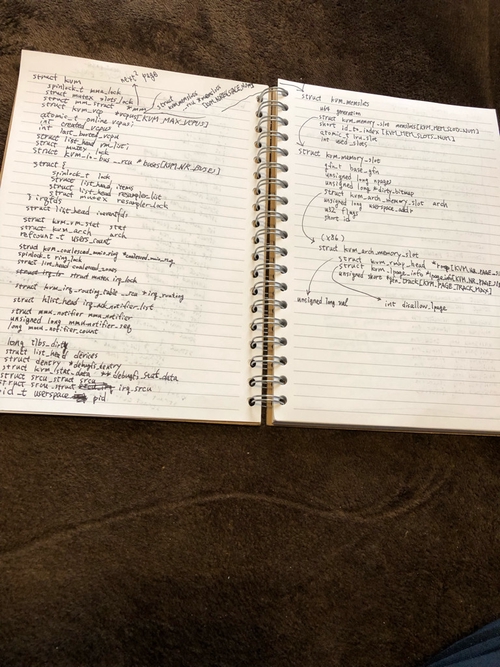 struct kvm
spinlock_t mmu_lock
struct mutex slots_lock
struct mm_struct *mm
struct kvm_memslots __rcu *memslots [KVM_ADDRESS_SPACE_NUM]
next page
struct kvm_vcpu *vcpus[KVM_MAX_VCPUS]
atomic_t online_vcpus
int created_vcpus
int last_boosted_vcpu
struct list_head vm_list
struct mutex lock
struct kvm_io_bus __rcu *buses[KVM_NR_BUSES]
struct {
spinlock_t lock
struct list_head items
struct list_head resampler_list
struct mutex resampler_lock
} irqfds
struct list_head ioeventfds
struct kvm_vm_stat stat
struct kvm_arch arch
refcount_t users_count
struct kvm_coalesced_mmio_ring *coalesced_mmio_ring
spinlock_t ring_lock
struct list_head coalesced_zones
struct mutex irq_lock
struct kvm_irq_routing_table __rcu *irq_routing
struct hlist_head irq_ack_notifier_list
struct mmu_notifier mmu_notifier
unsigned long mmu_notifier_seq
long mmu_notifier_count
long tlbs_dirty
struct list_head devices
struct dentry *debugfs_dentry
struct kvm_stat_data **debugfs_stat_data
struct srcu_struct srcu
struct srcu_struct irq_srcu
pid_t userspace pid
struct kvm_memslots
u64 generation
struct kvm_memory_slot memslots[KVM_MEM_SLOTS_NUM]
short id_to_index[KVM_MEM_SLOTS_NUM]
atomic_t lru_slot
int used_slots
struct kvm_memory_slot
gfn_t base_gfn
unsigned long npages
unsigned long *dirty_bitmap
struct kvm_arch_memory_slot arch
unsigned long userspace_addr
u32 flags
short id
(x86)
struct kvm_arch_memory_slot
struct kvm_rmap_head *rmap[KVM_NR_PAGE_
struct kvm_lpage_info *lpage_info[KVM_NR_PAGE_
unsigned short *gfn_track[KVM_PAGE_TRACK_MAX]
unsigned long val
int disallow_lpage